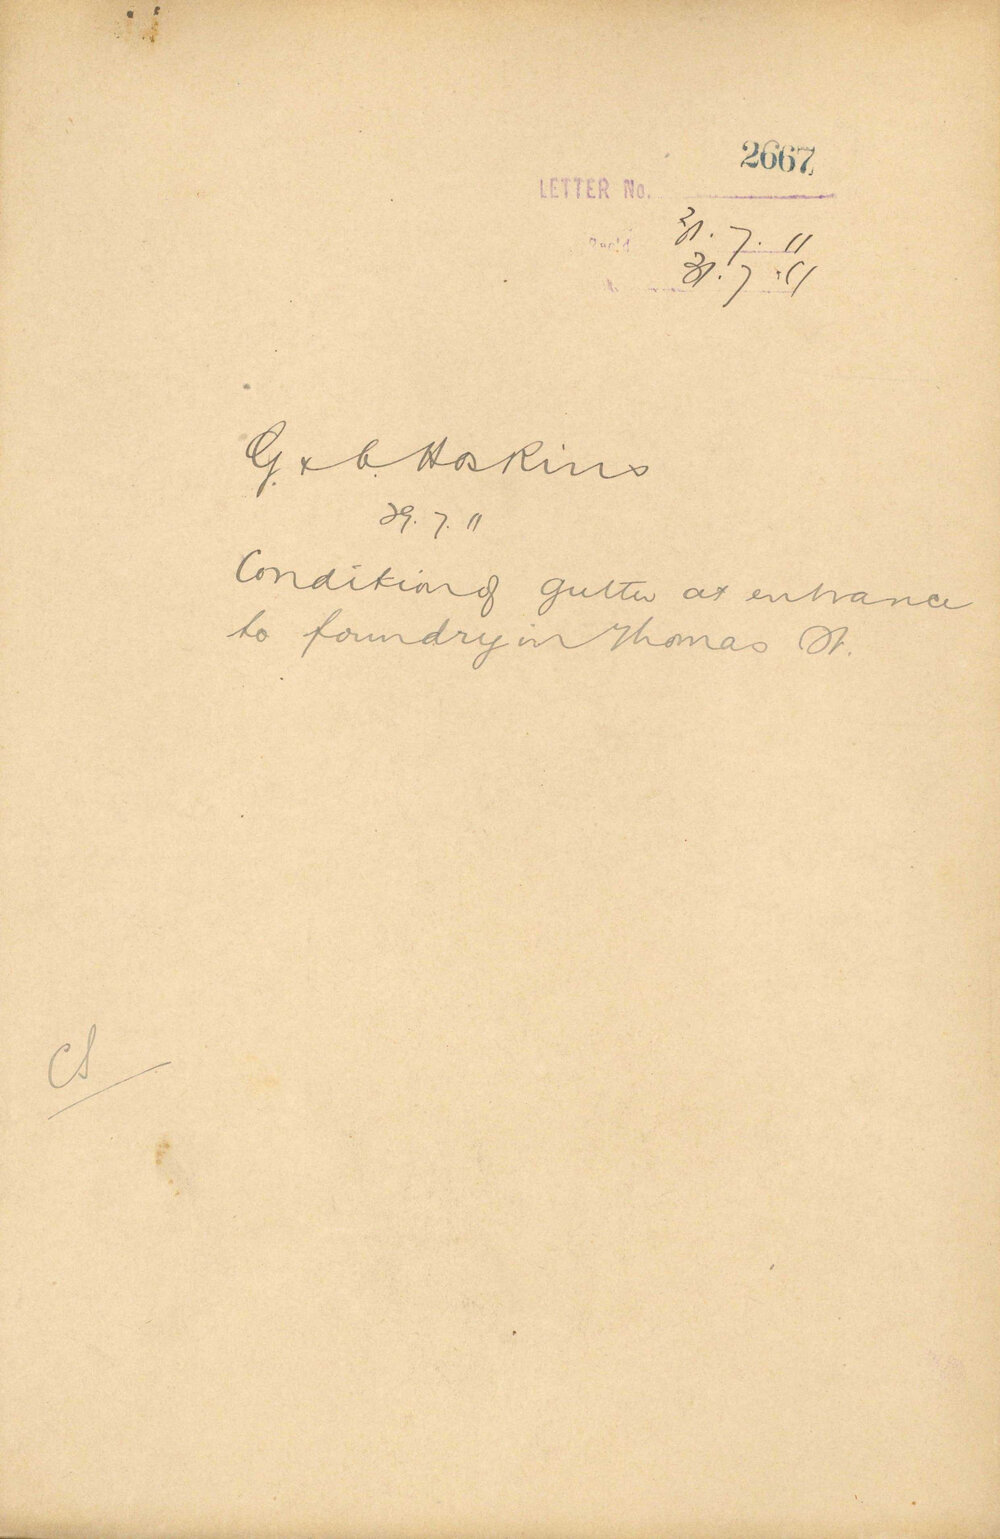 2667
LETTER No.
Rec'd 31. 7. 11
31. 7. 11
G. & C. Hoskins
29. 7. 11
Condition of gutter at entrance
to foundry in Thomas St.
CS